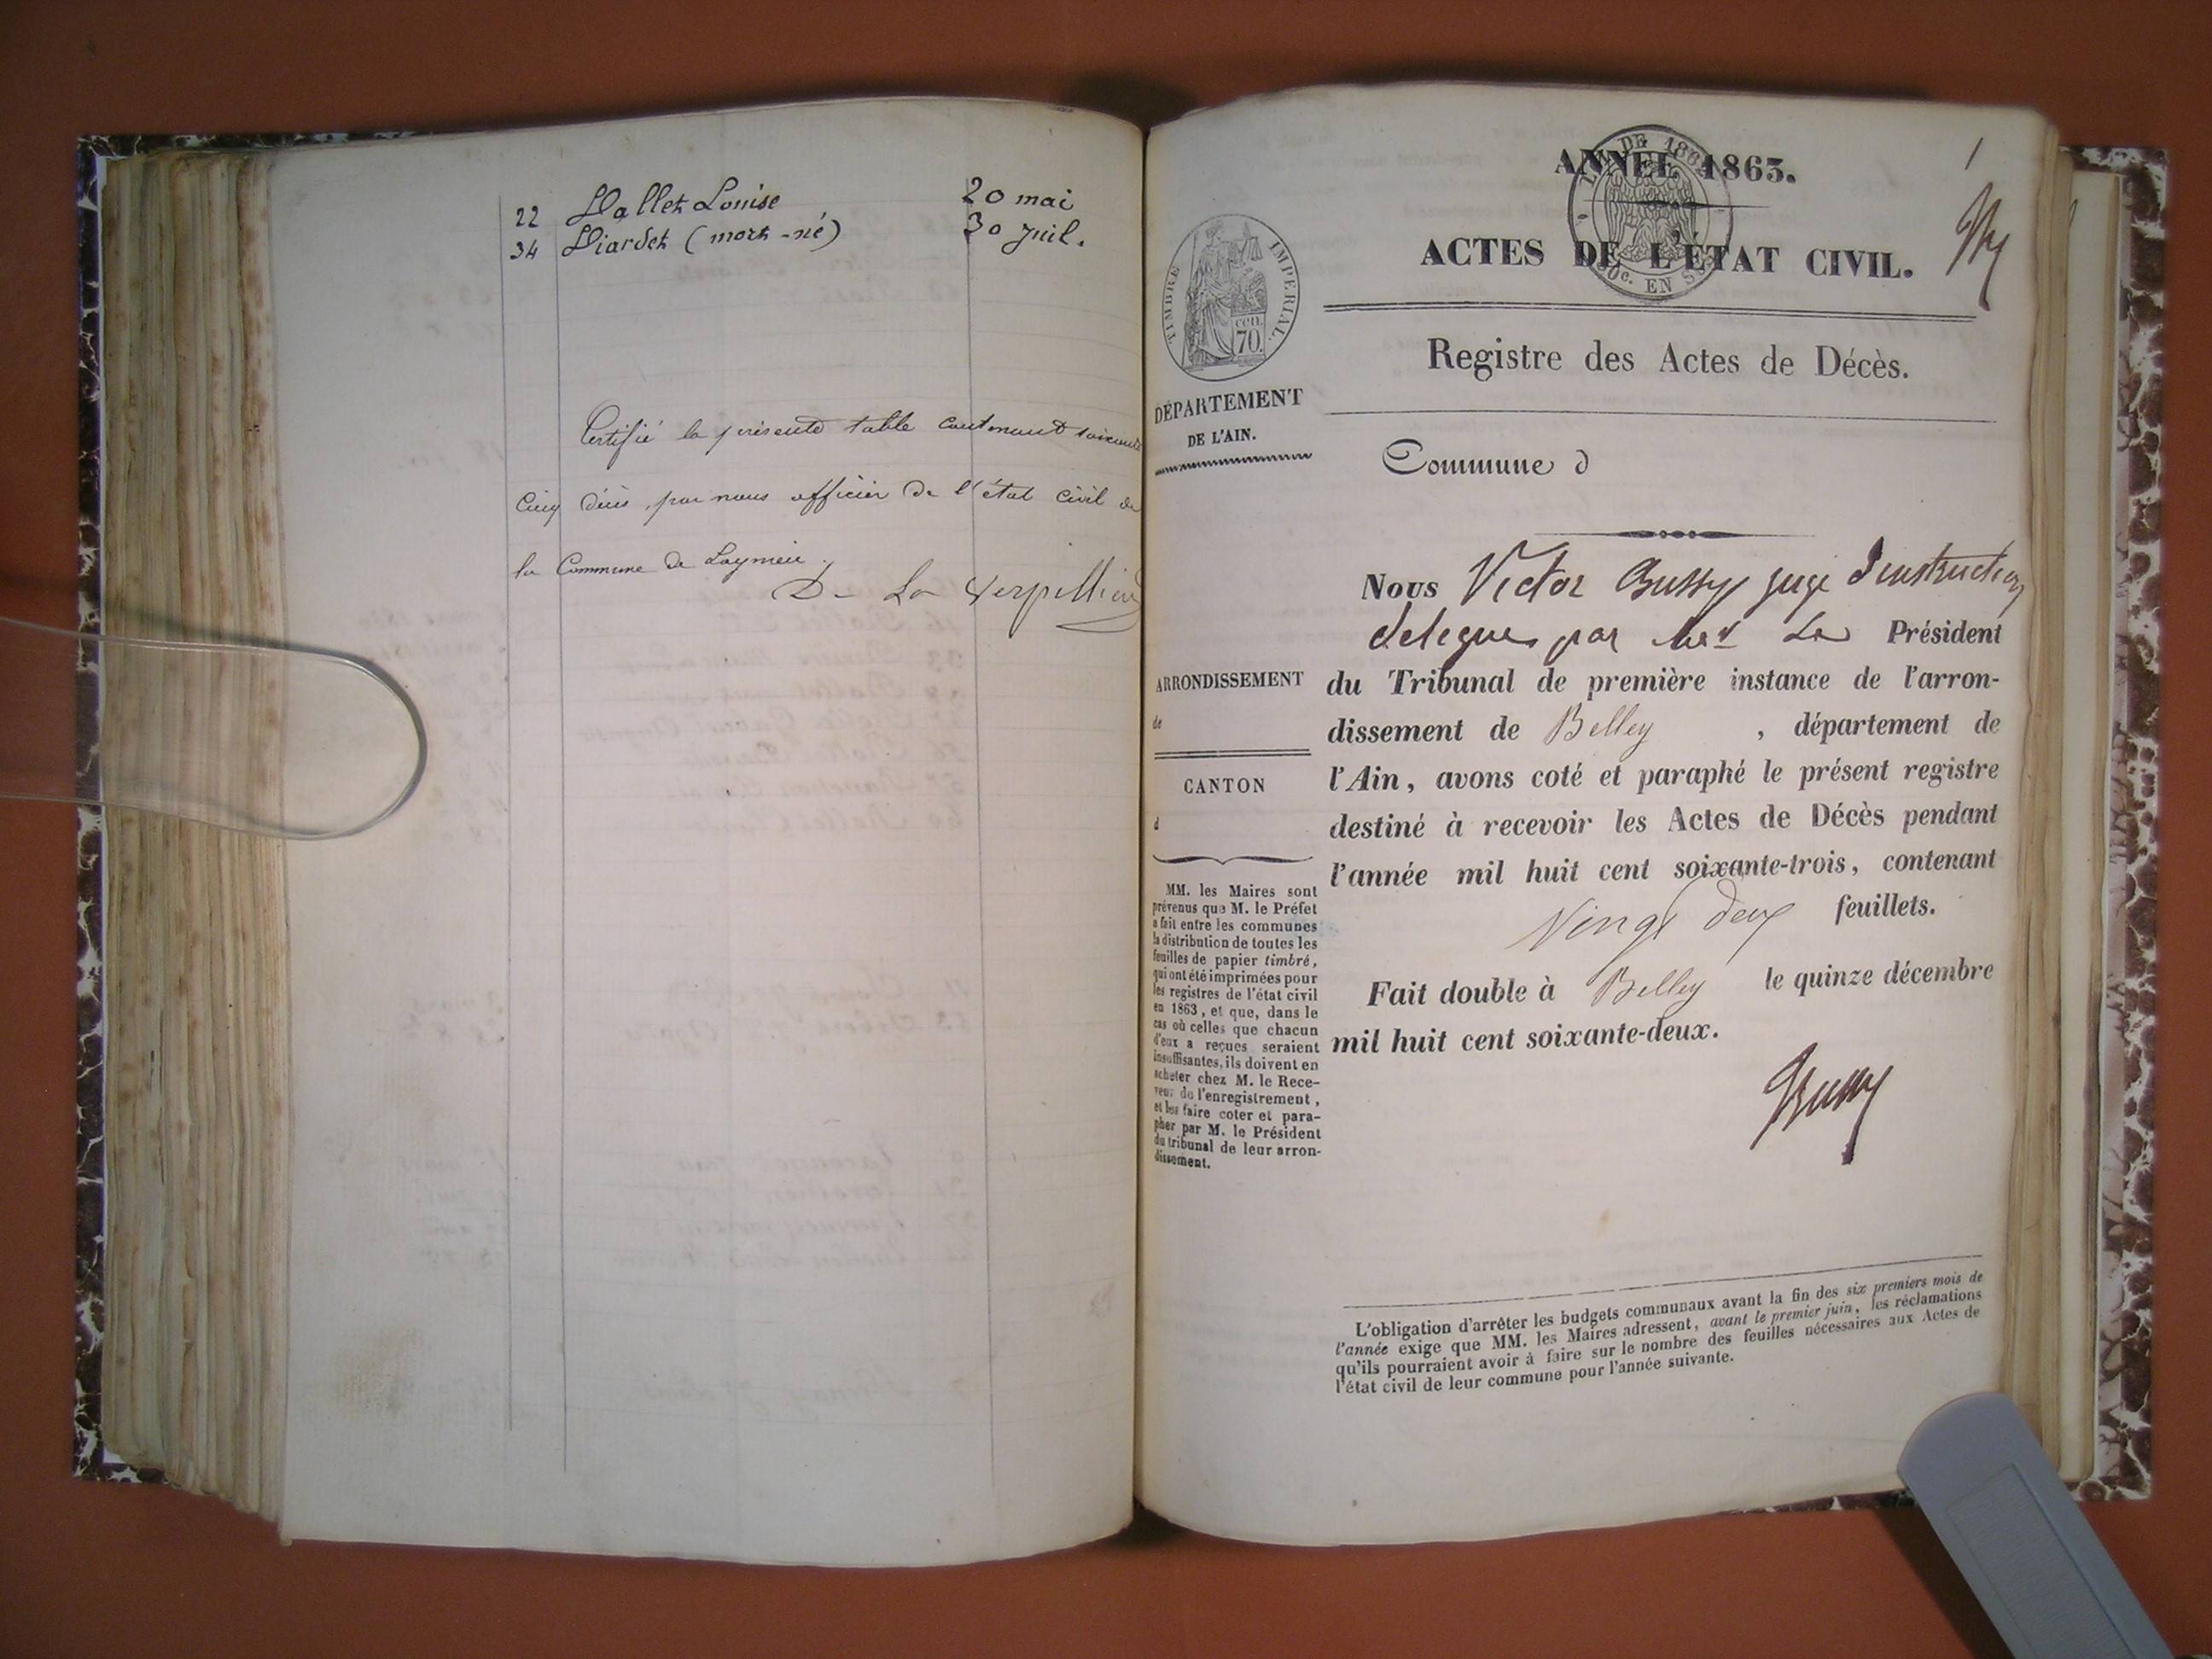 22 Vallet Louise 20 mai
34 Viardet (mort-né) 30 juil.
Certifié la présente table contenant soixante
cinq décès, par nous officier de l'état civil de
la Commune de Loymieu.
De La Verpillière
1
ANNÉE 1863.
ACTES DE L'ÉTAT CIVIL.
TIMBRE IMPERIAL.
cen.
70.
Registre des Actes de Décès.
DÉPARTEMENT
DE L'AIN.
Commune d
Nous Victor Bussy juge d'instruction
delegue par Mr Le Président
ARRONDISSEMENT
de
du Tribunal de première instance de l'arron-
dissement de Belley , département de
CANTON
d
l'Ain, avons coté et paraphé le présent registre
destiné à recevoir les Actes de Décès pendant
l'année mil huit cent soixante-trois, contenant
Vingt deux feuillets.
Fait double à Belley le quinze décembre
mil huit cent soixante-deux.
Bussy
MM. les Maires sont
prévenus que M. le Préfet
a fait entre les communes
la distribution de toutes les
feuilles de papier timbré,
qui ont été imprimées pour
les registres de l'état civil
en 1863, et que, dans le
cas où celles que chacun
d'eux a reçues seraient
insuffisantes, ils doivent en
acheter chez M. le Rece-
veur de l'enregistrement,
et les faire coter et para-
pher par M. le Président
du tribunal de leur arron-
dissement.
L'obligation d'arrêter les budgets communaux avant la fin des six premiers mois de
l'année exige que MM. les Maires adressent, avant le premier juin, les réclamations
qu'ils pourraient avoir à faire sur le nombre des feuilles nécessaires aux Actes de
l'état civil de leur commune pour l'année suivante.